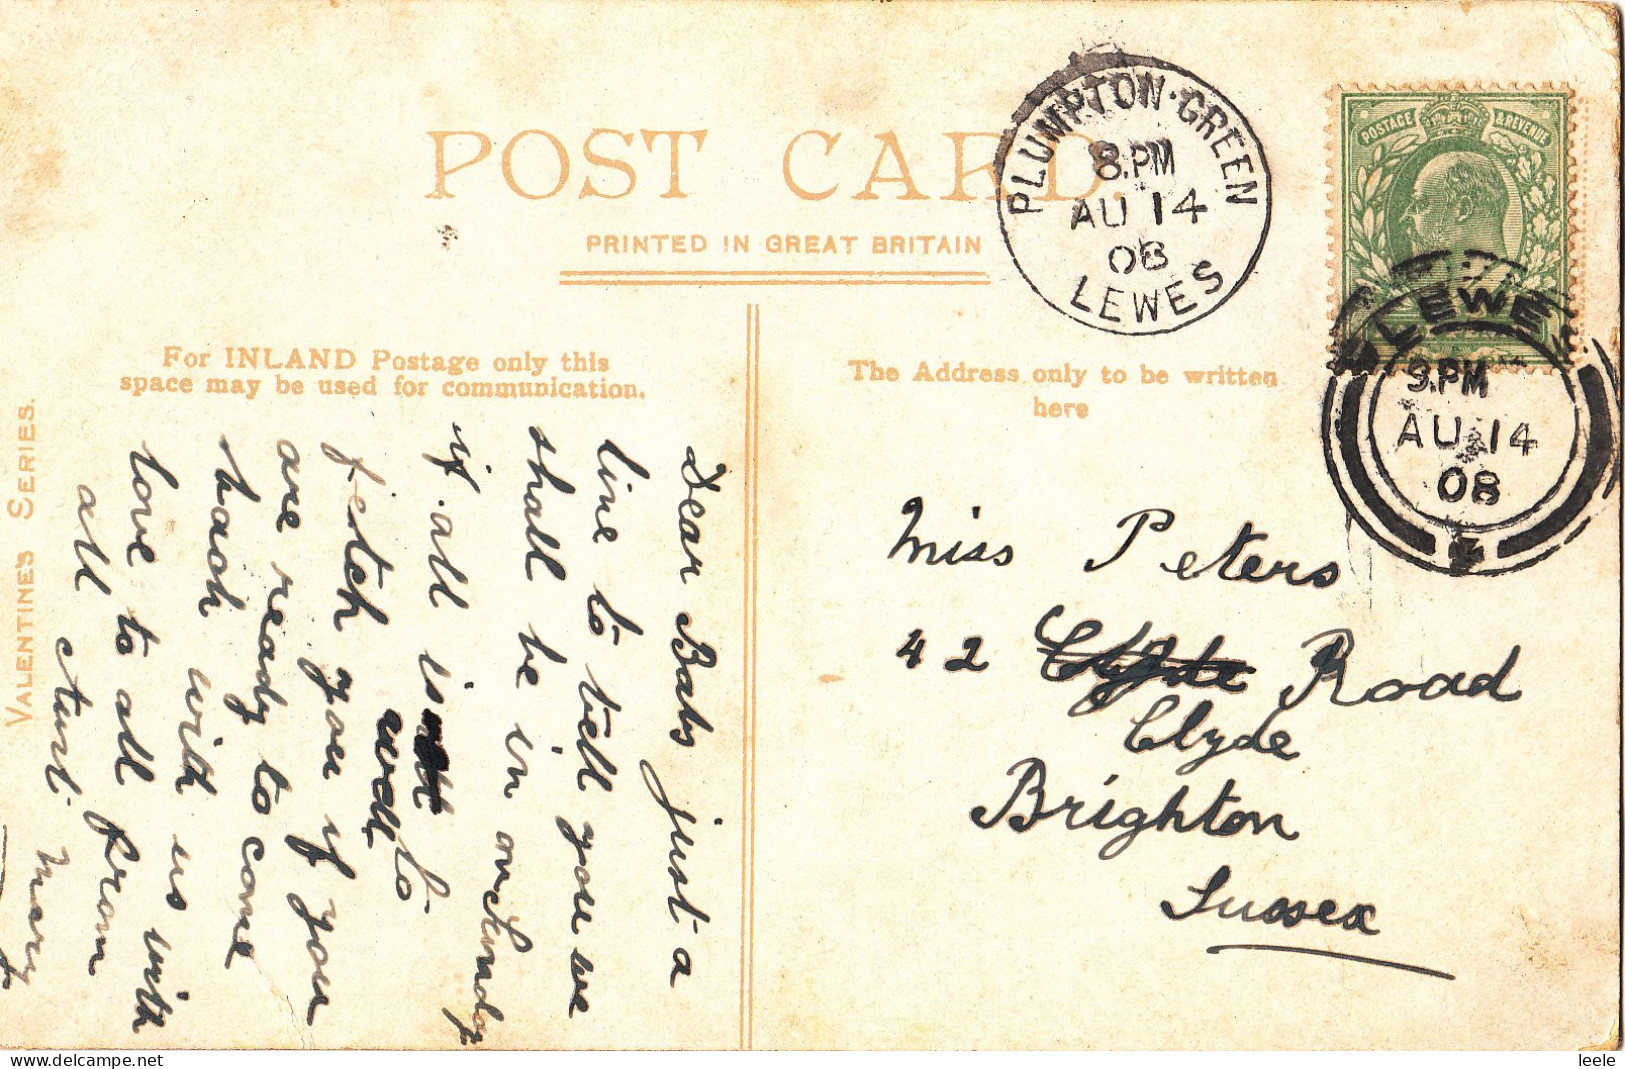 POST CARD.
PRINTED IN GREAT BRITAIN
For INLAND Postage only this
space may be used for communication.
The Address only to be written
here
VALENTINE'S SERIES.
PLUMPTON·GREEN
8.PM
AU 14
08
LEWES
POSTAGE & REVENUE
LEWES
9.PM
AU 14
08
Dear Babs just a
line to tell you we
shall be in on Sunday
if all is well to
fetch you if you
are ready to come
back with us with
love to all from
all Aunt Mary
Miss Peters
42 Clyde Road
Clyde
Brighton
Sussex
leele